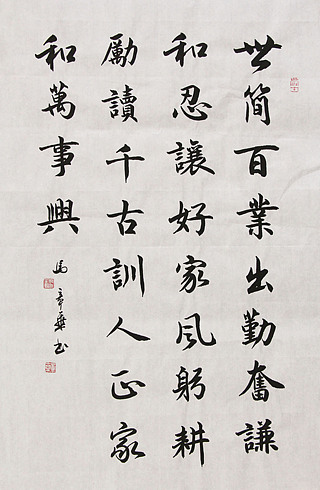 世简百業出勤奮謙
和忍讓好家风躬耕
勵讀千古訓人正家
和萬事興
馬章華书